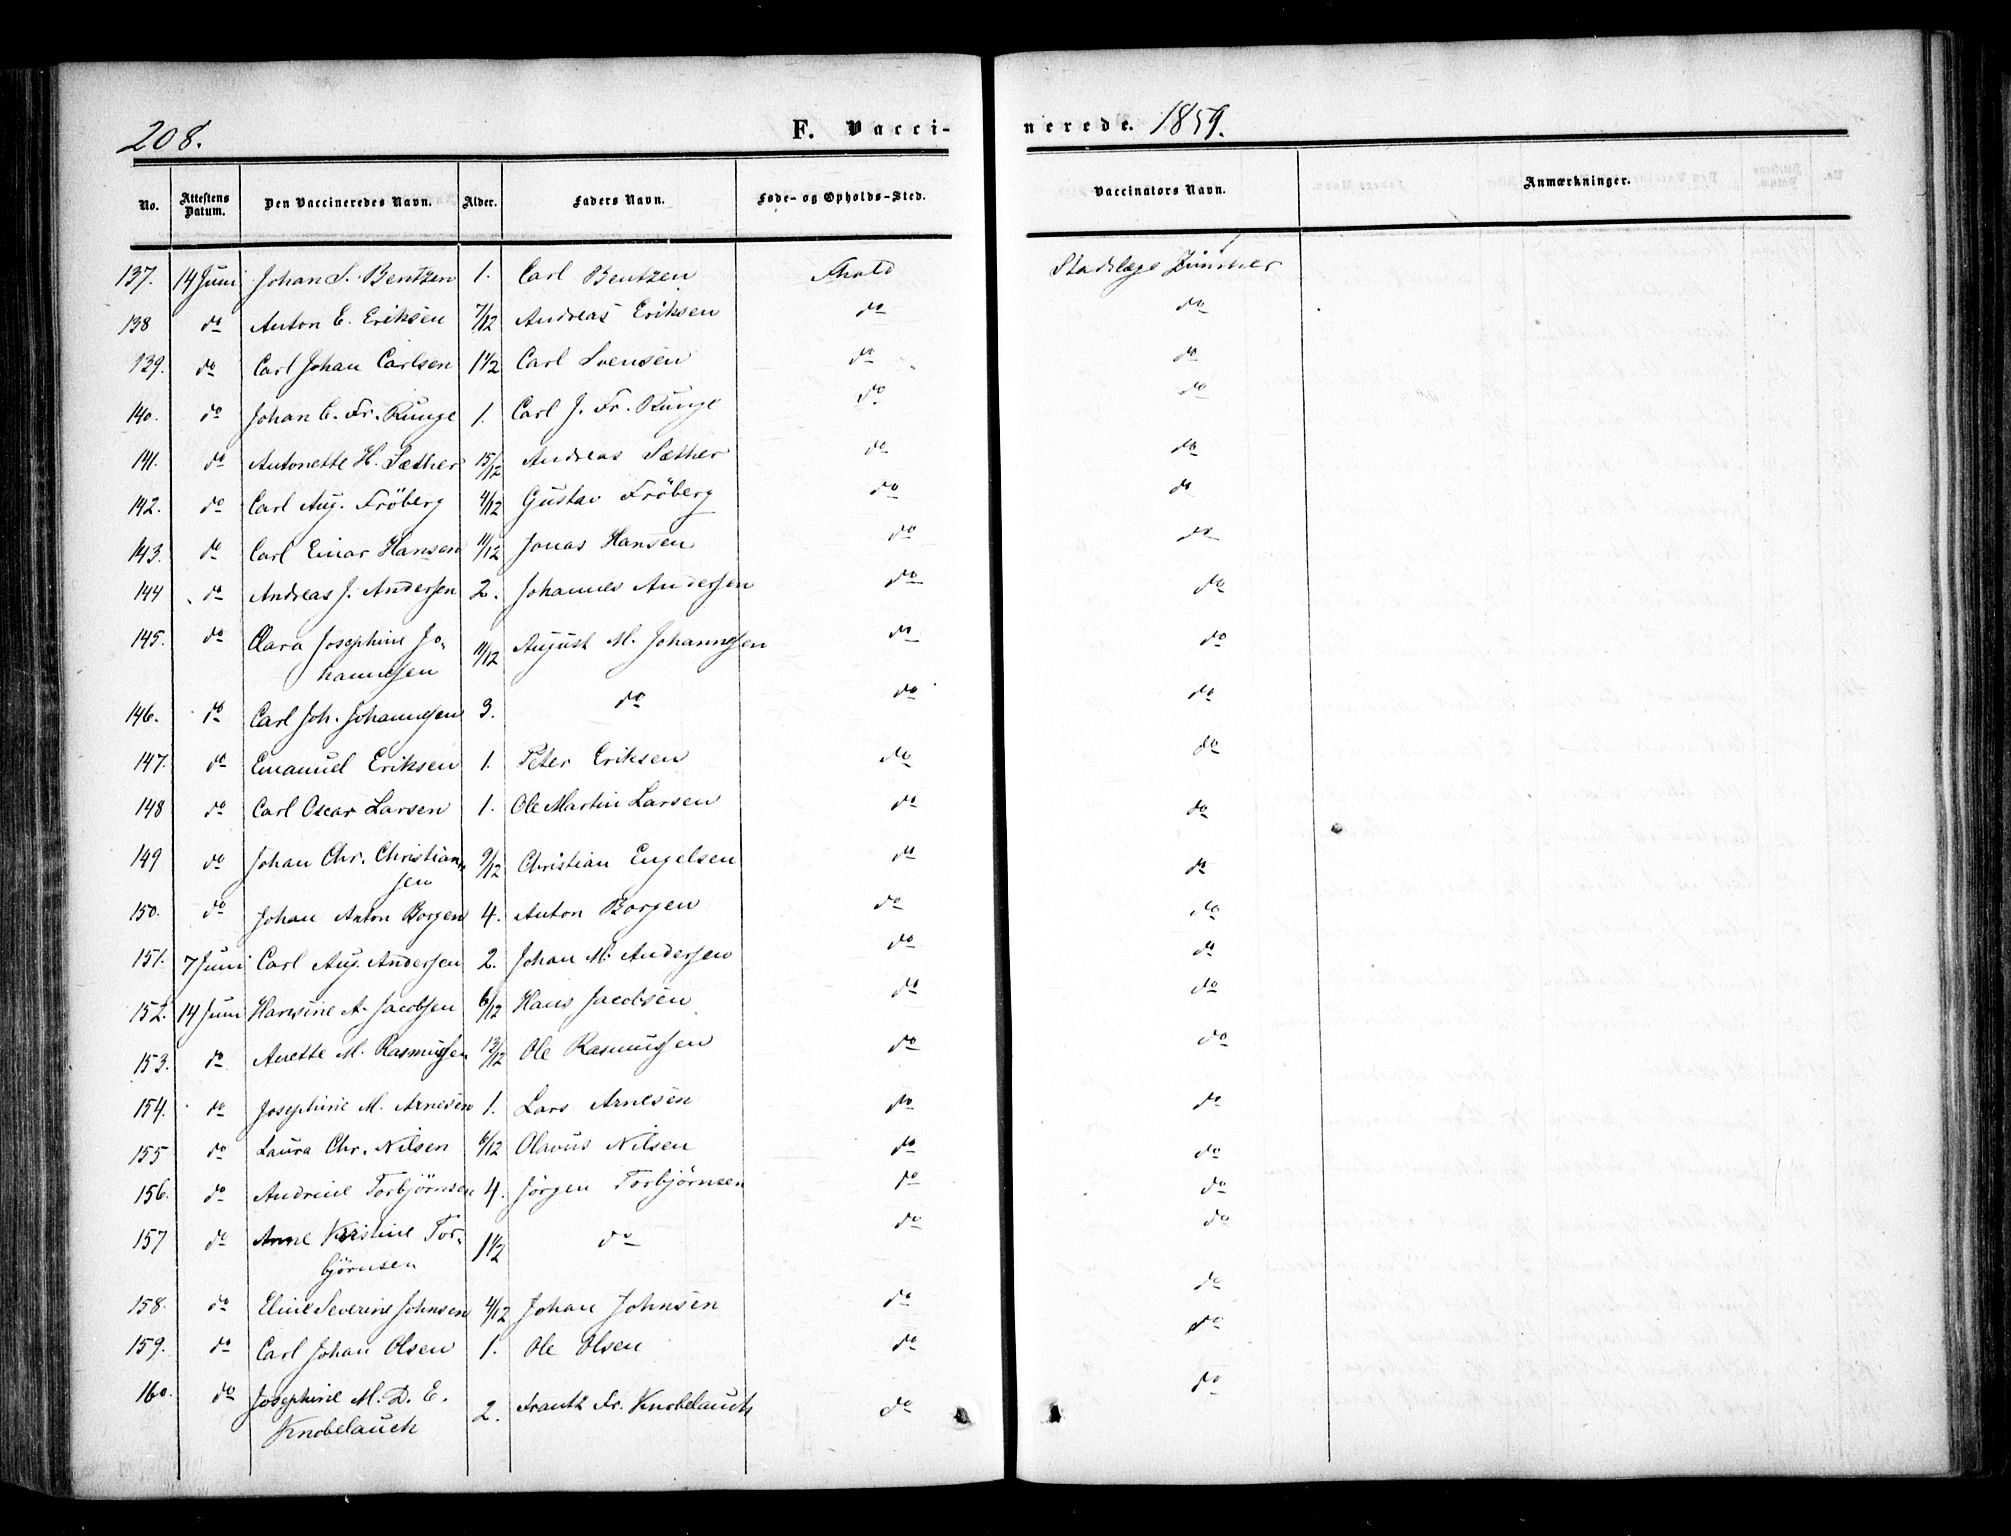 208. F. Vacci- nerede. 1859.
No. Attestens Datum. Den Vaccineredes Navn. Alder. Faders Navn. Føde- og Opholds-Sted. Vaccinators Navn. Anmærkninger.
137. 14 Juni Johan S. Bentzen 1. Carl Bentzen Stadslæge
138 do Anton E. Eriksen 7/12 Andreas Eriksen do do
139. do Carl Johan Carlsen 1 1/2 Carl Svensen do do
140. do Johan C. Fr. Runge 1. Carl J. Fr. Runge do do
141. do Antonette H. Sæther 15/12 Andreas Sæther do do
142. do Carl Aug. Fröberg 4/12 Gustav Fröberg do do
143. do Carl Einar Hansen 11/12 Jonas Hansen do do
144 do Andreas J. Andersen 2. Johannes Andersen do do
145. do Clara Josephine Jo- 11/12 August M. Johannesen do do
hannesen
146. do Carl Joh. Johannesen 3. do do do
147. do Emanuel Eriksen 1. Peter Eriksen do do
148 do Carl Oscar Larsen 1. Ole Martin Larsen do do
149 do Johan Chr. Christian- 9/12 Christian Engelsen do do
sen
150. do Johan Anton Borgen 4. Anton Borgen do do
151. 7 Juni Carl Aug. Andersen 2. Johan M. Andersen do do
152. 14 Juni Hansine A. Jacobsen 6/12 Hans Jacobsen do do
153. do Anette M. Rasmussen 13/12 Ole Rasmussen do do
154. do Josephine M. Arnesen 1. Lars Arnesen do do
155 do Laura Chr. Nilsen 6/12 Olavus Nilsen do do
156. do Andrine Torbjörnsen 4. Jörgen Torbjörnsen do do
157 do Anne Kristine Tor- 1 1/2 do do do
björnsen
158. do Eline Severine Johnsen 4/12 Johan Johnsen do do
159. do Carl Johan Olsen 1. Ole Olsen do do
160. do Josephine M. D. E. 2. Frantz Fr. Knobelauch do do
Knobelauch